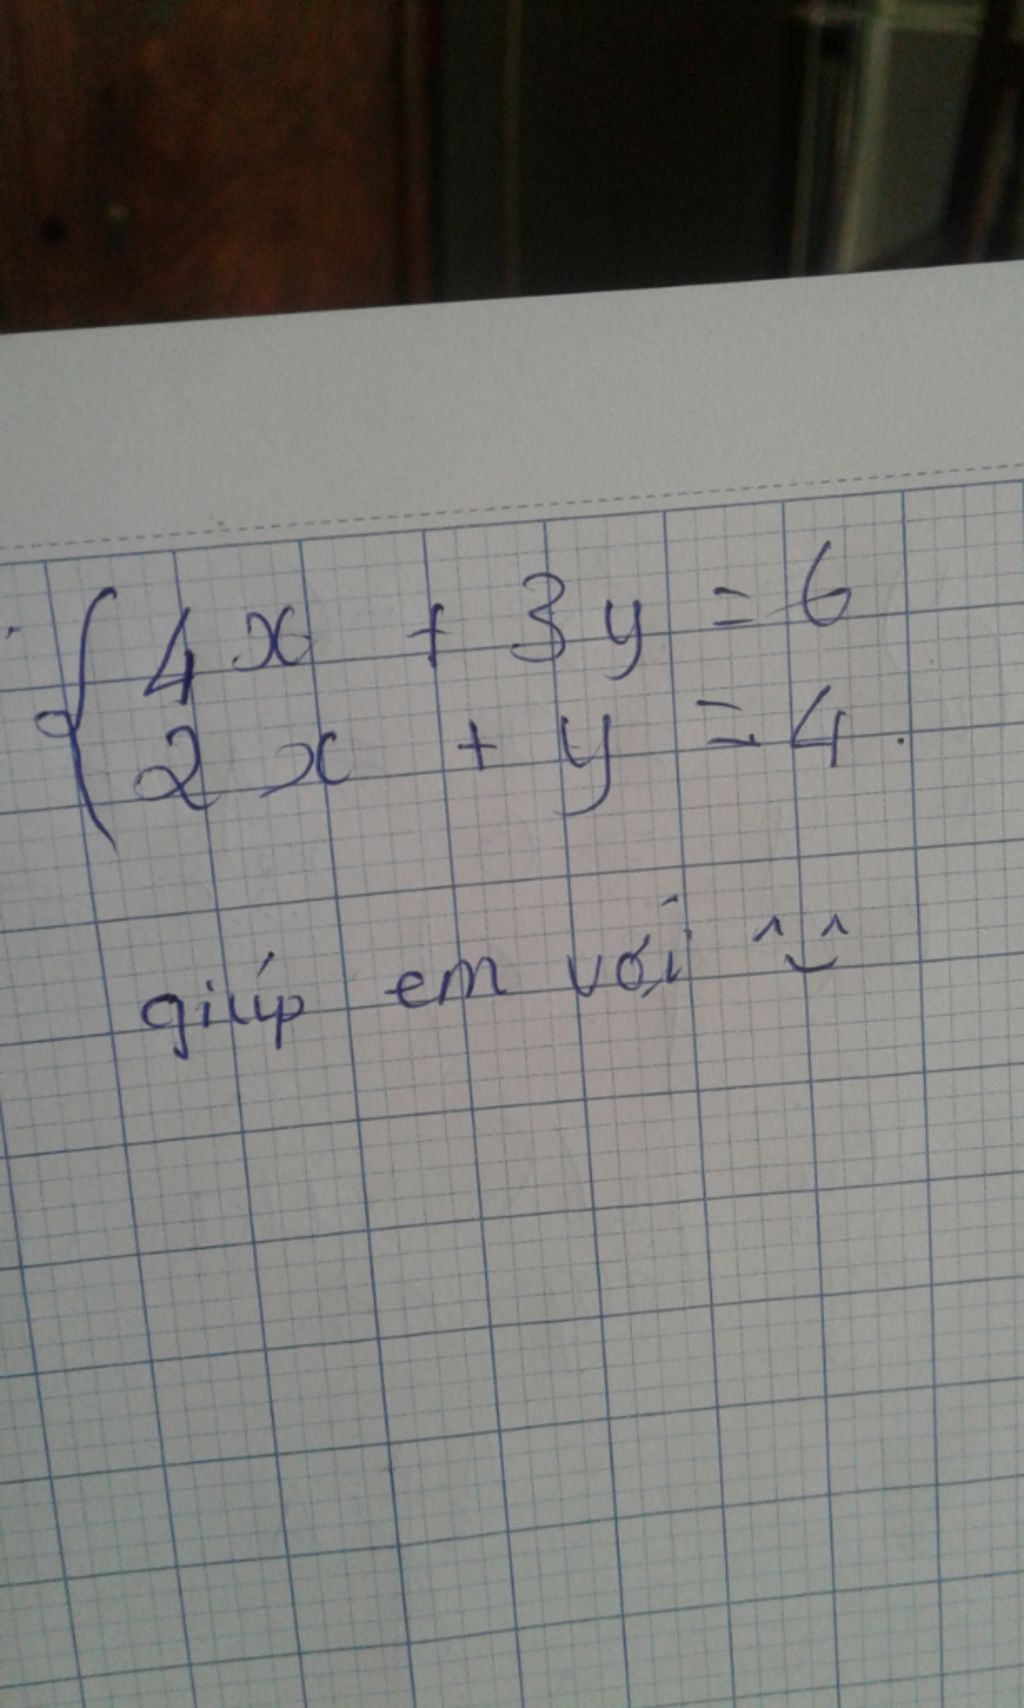 { 4x + 3y = 6
2x + y = 4.
giúp em với ^‿^